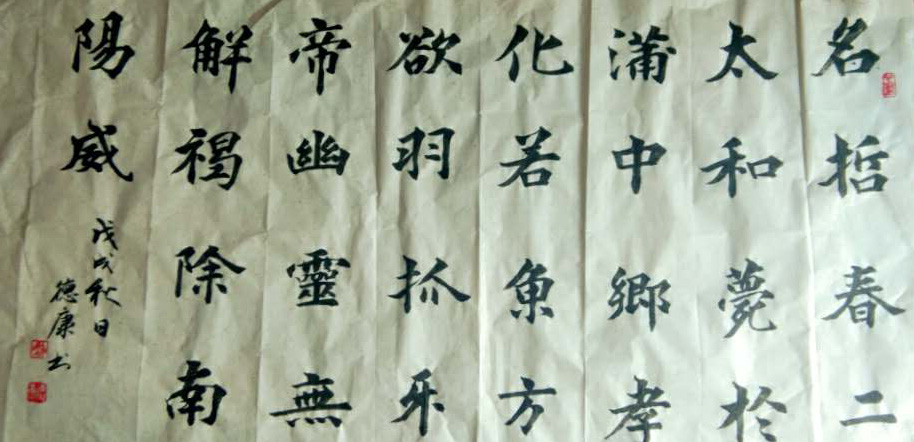 名哲春二
太和薨於
蒲中鄉孝
化若魚方
欲羽抓牙
帝幽靈無
解褐除南
陽威
戊戌秋日
德康书